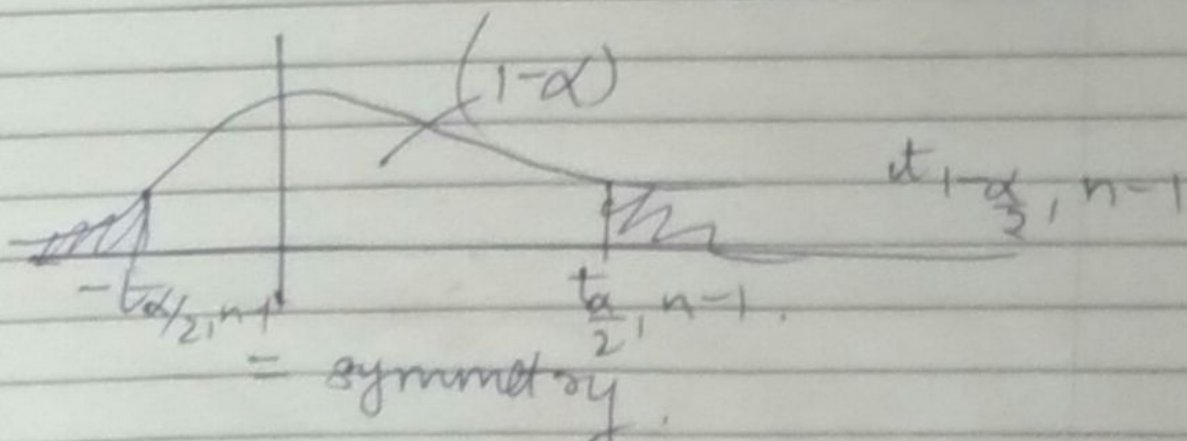 (1-α)
t 1-α/2, n-1
-tα/2, n-1
tα/2, n-1.
= symmetry.